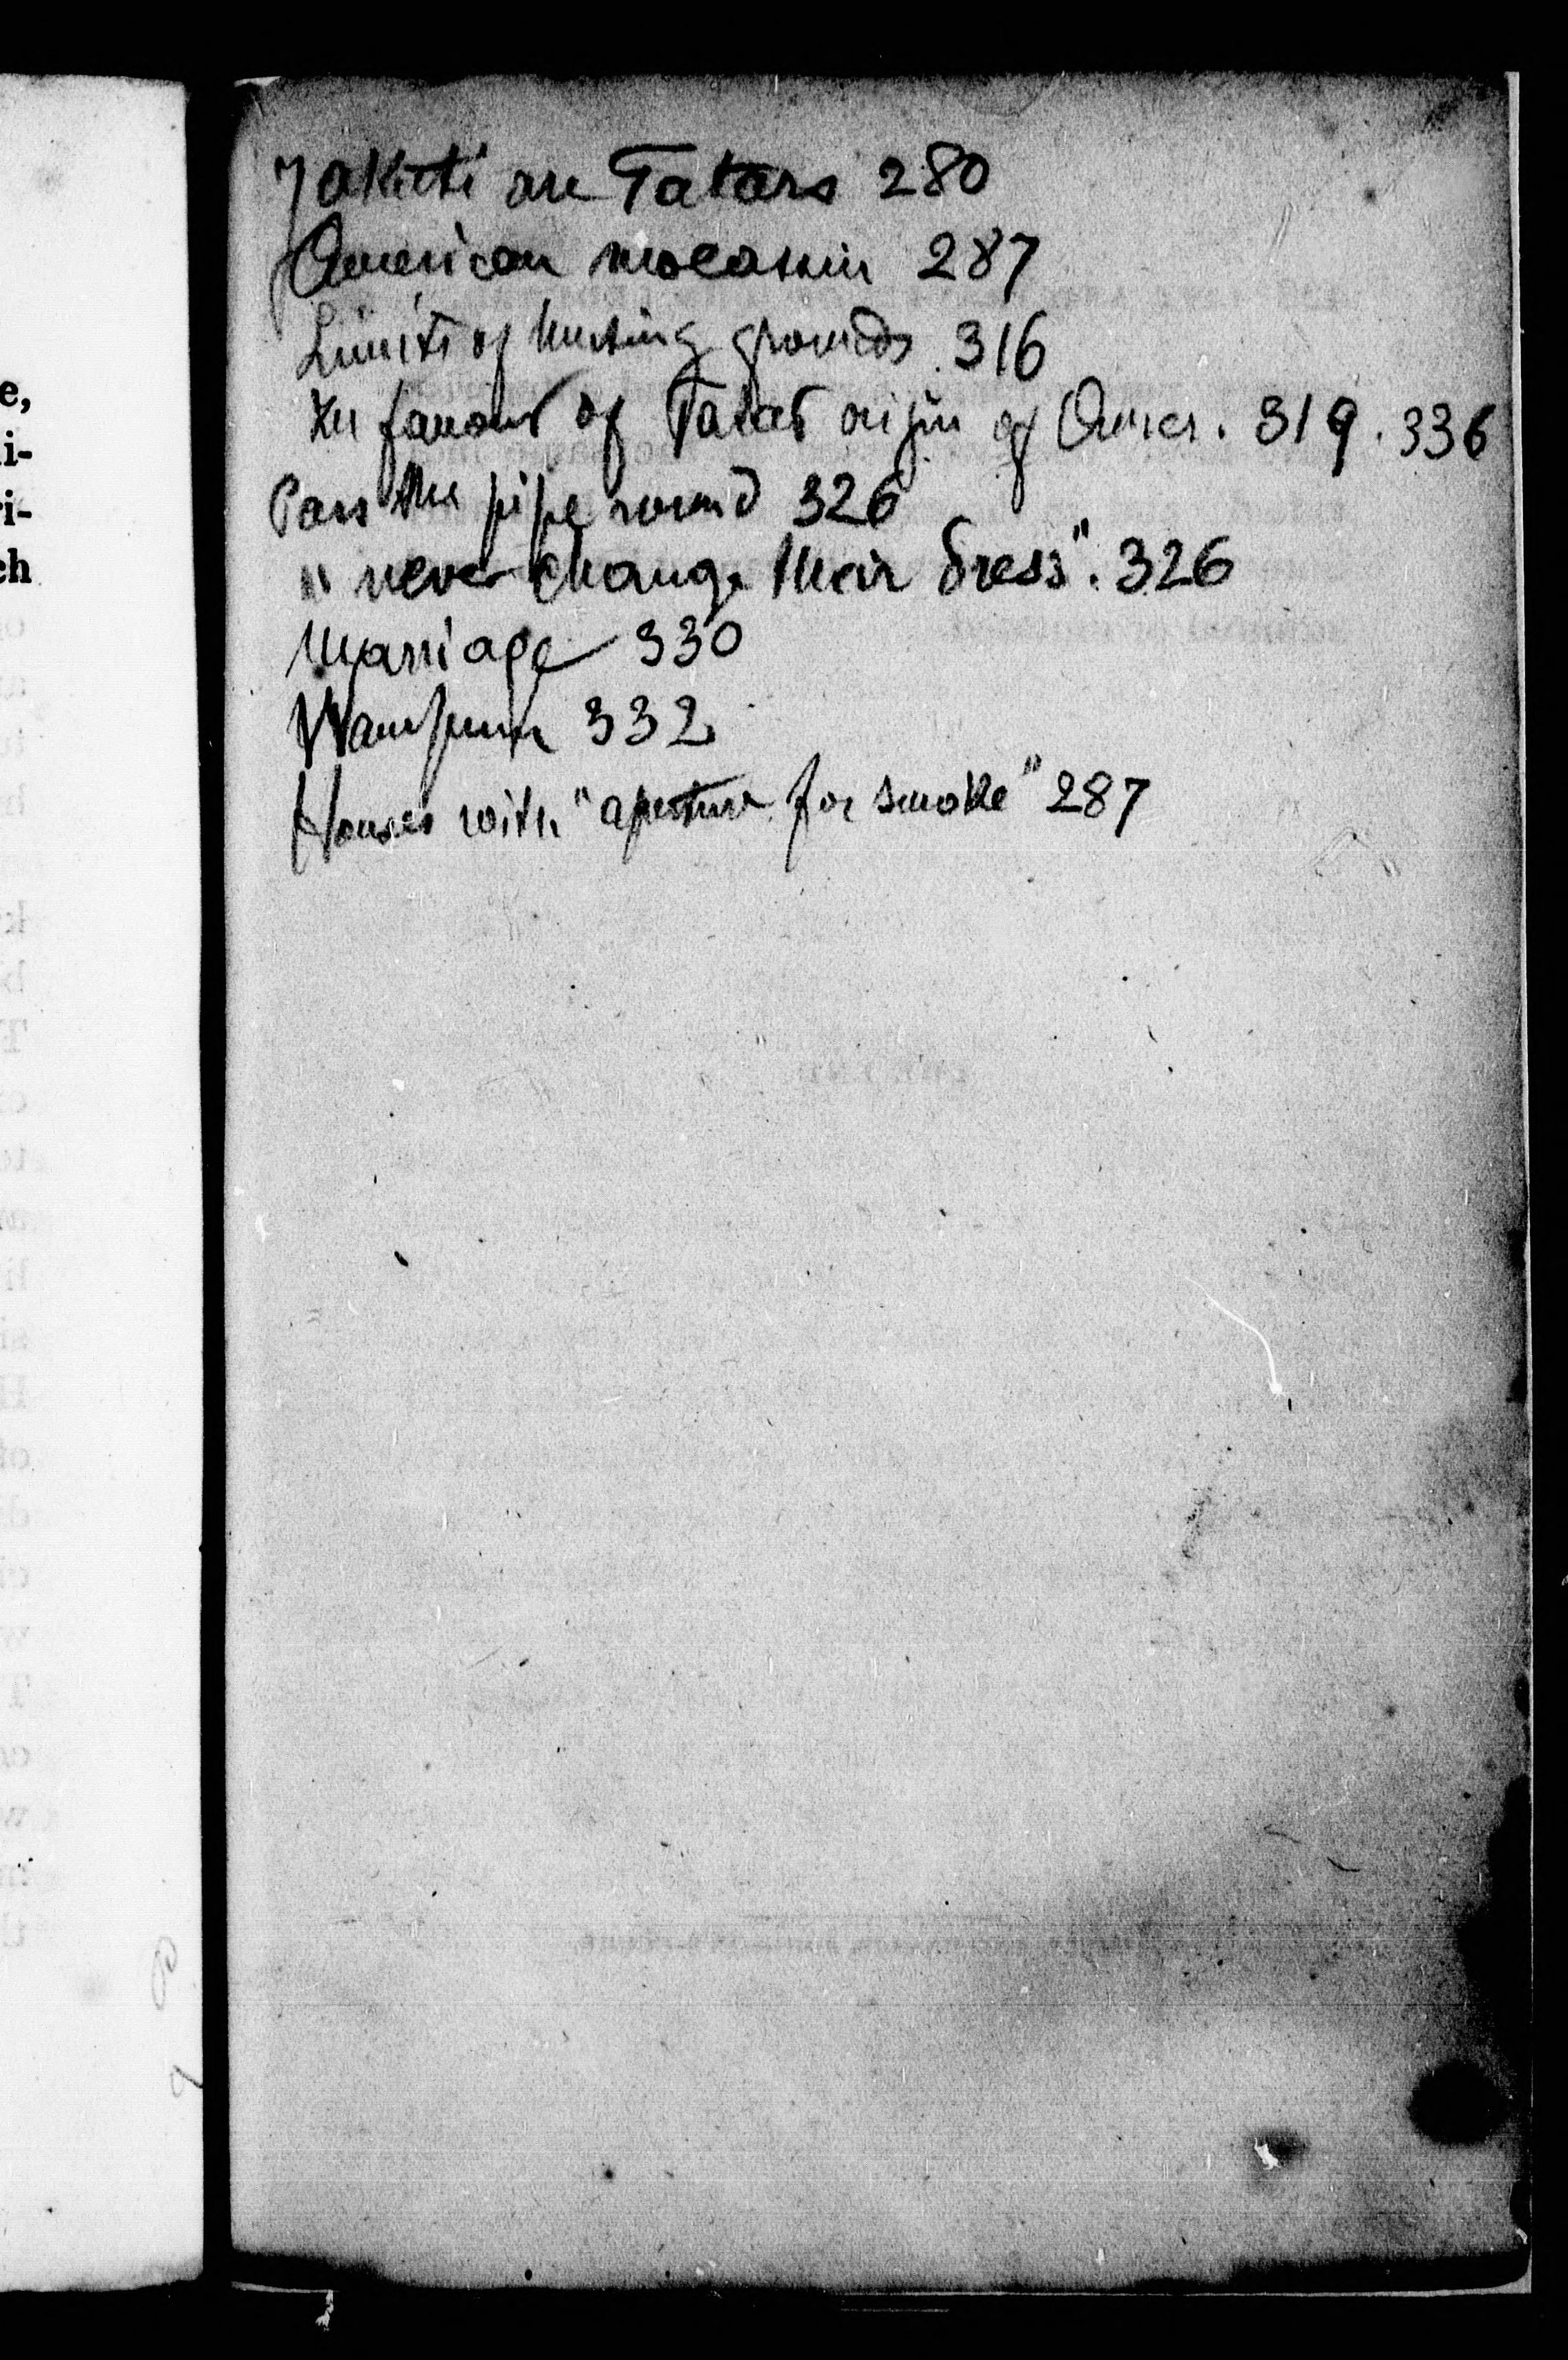 Jakuti are Tatars 280
American mocassin 287
Limits of hunting grounds. 316
In favour of Tatar origin of Amer. 319. 336
Pass the pipe round 326
"never change their dress". 326
Marriage 330
Wampum 332
Houses with "aperture for smoke" 287
e,
i-
i-
ch